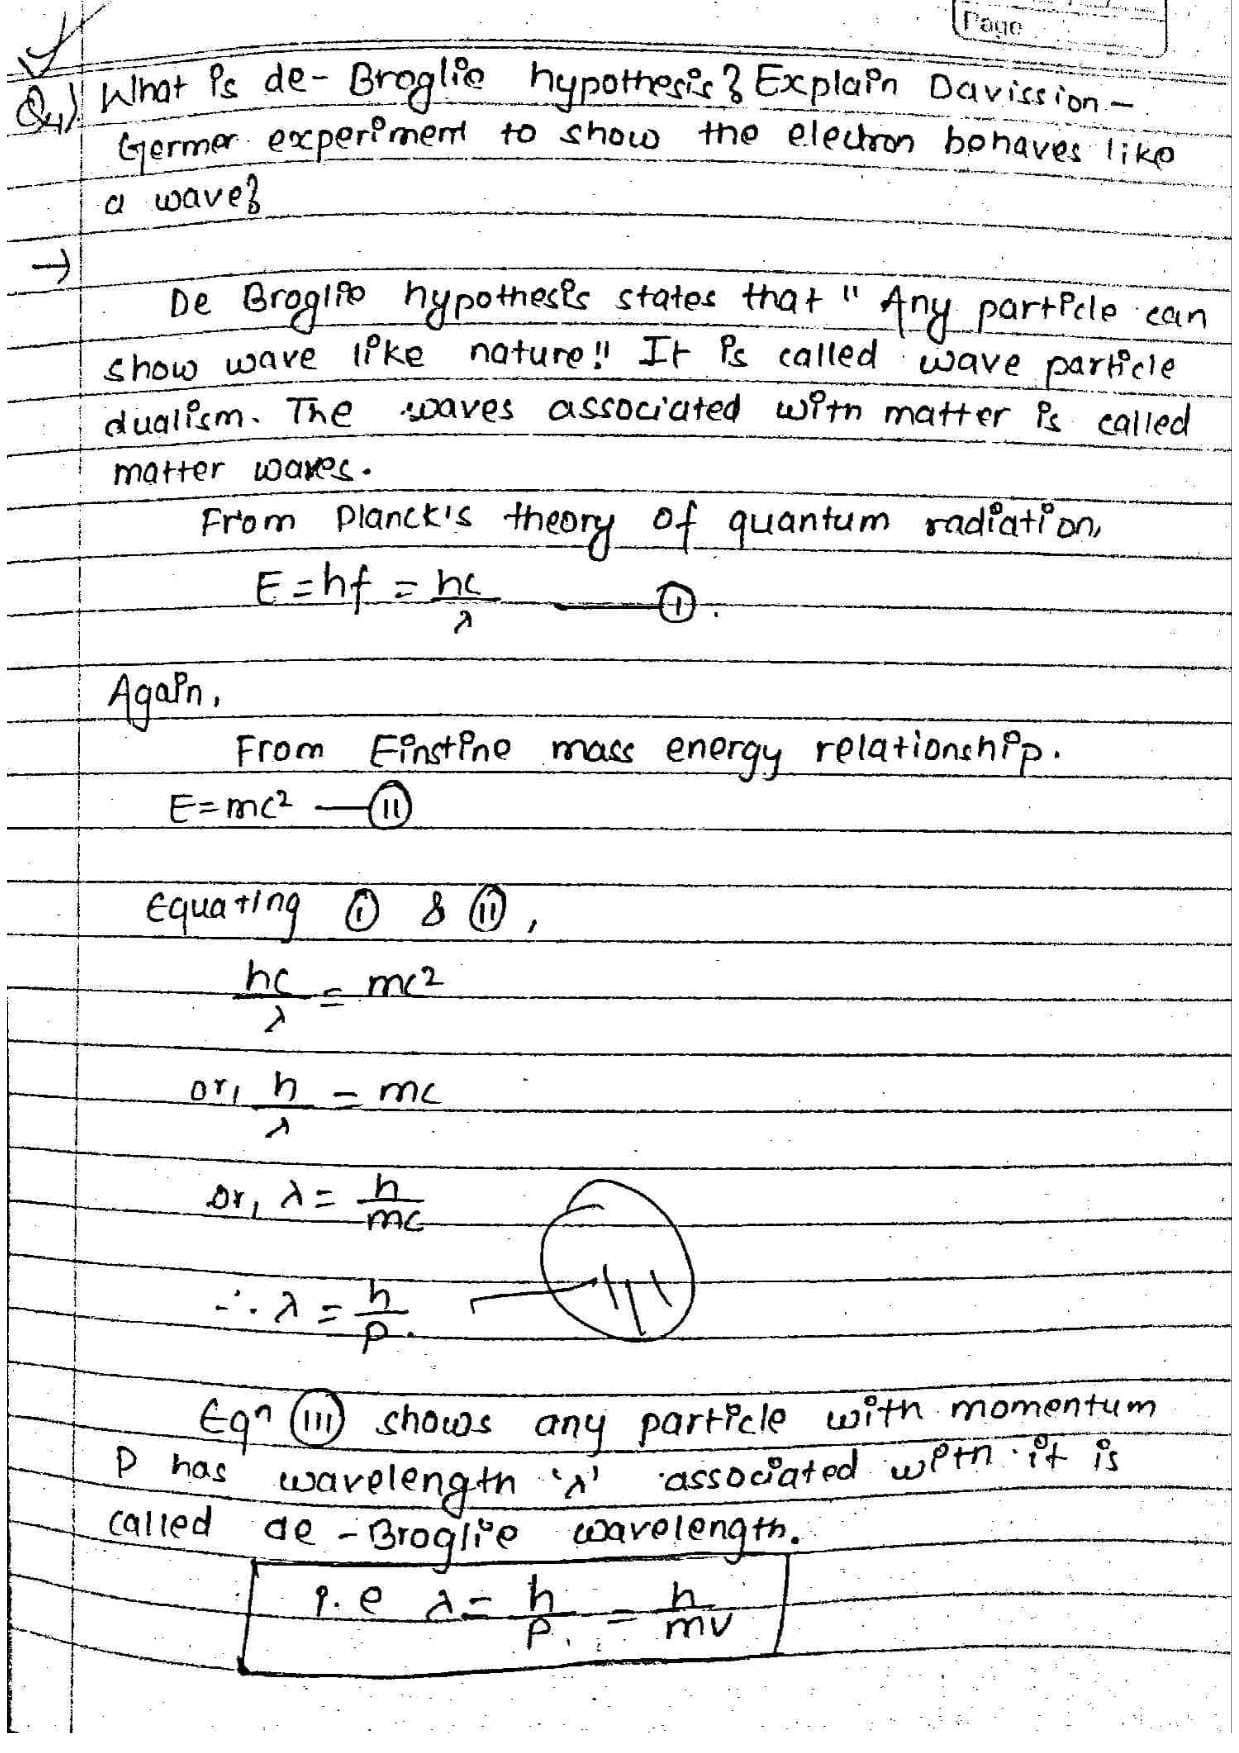 Page
Q4) What is de-Broglie hypothesis? Explain Davission-
Germer experiment to show the electron behaves like
a wave?
→
De Broglie hypothesis states that " Any particle can
show wave like nature!! It is called wave particle
dualism. The waves associated with matter is called
matter waves.
From Planck's theory of quantum radiation,
E = hf = hc/λ —— (i).
Again,
From Einstine mass energy relationship.
E = mc² — (ii)
Equating (i) & (ii),
hc/λ = mc²
or, h/λ = mc
or, λ = h/mc
∴ λ = h/p. — (iii)
Eqn (iii) shows any particle with momentum
P has wavelength 'λ' associated with it is
called de-Broglie wavelength.
i.e λ = h/p. = h/mv